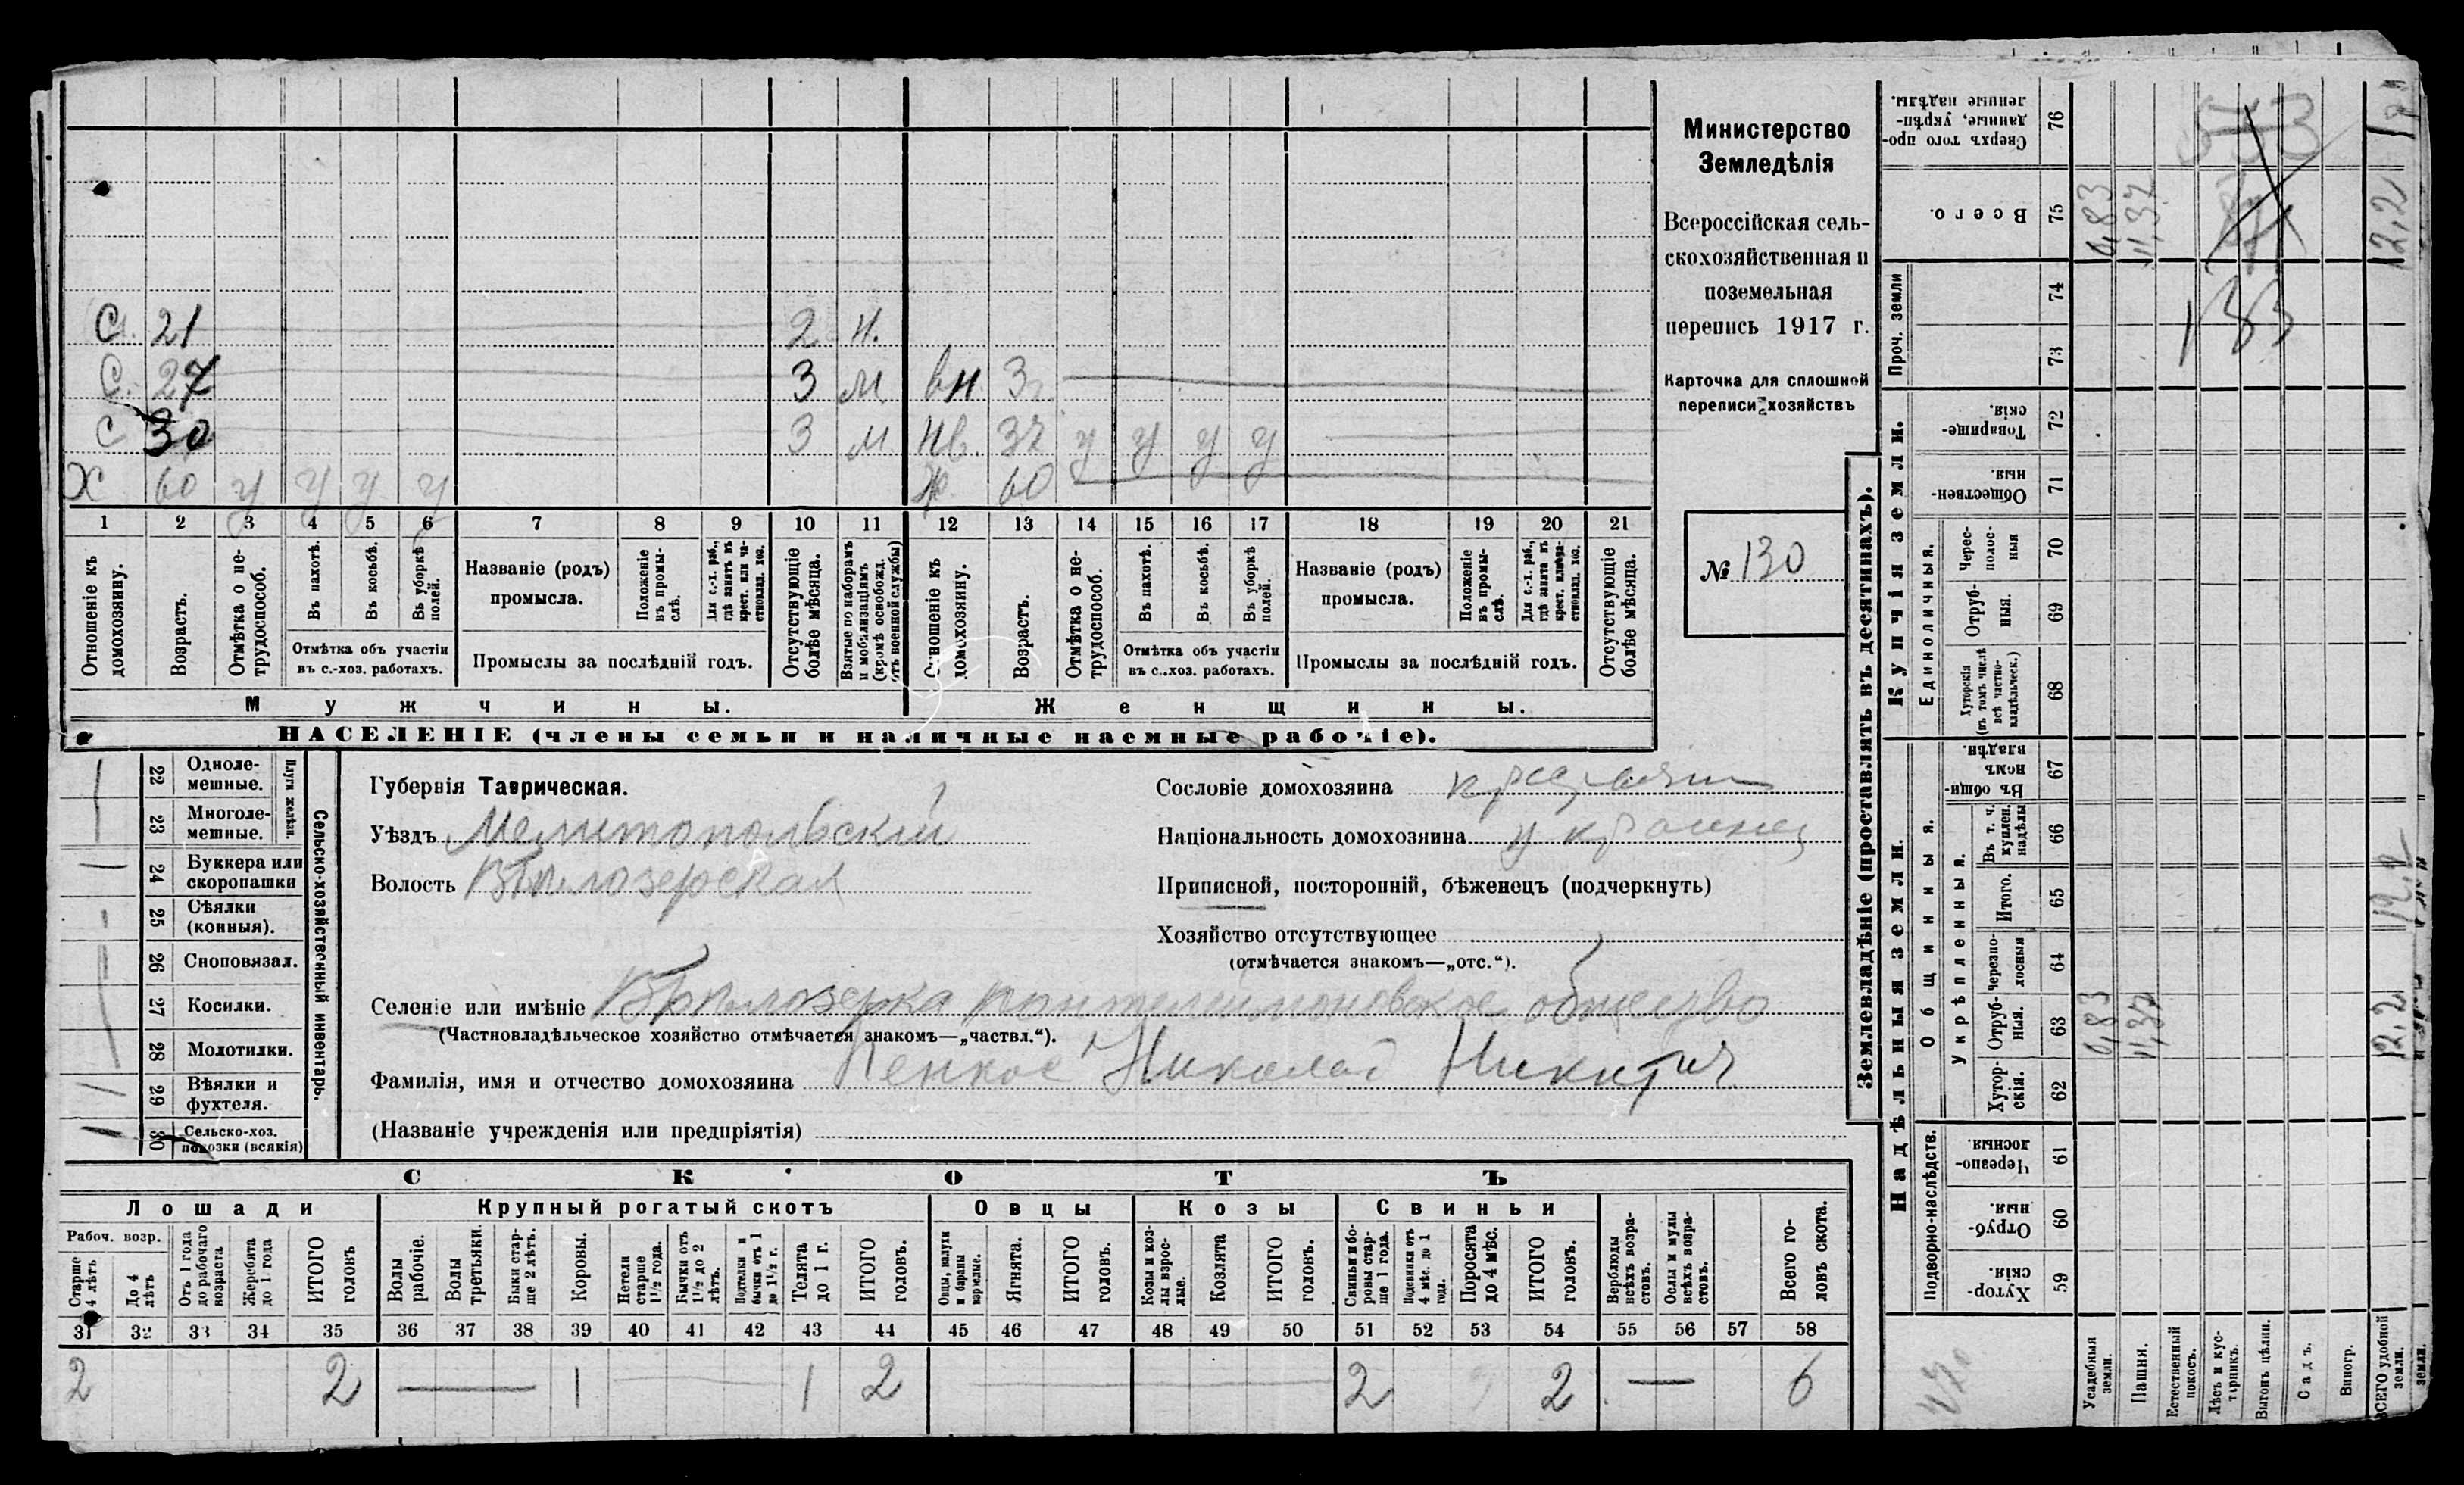 Министерство
Земледѣлія
Всероссійская сель-
скохозяйственная и
поземельная
перепись 1917 г.
Карточка для сплошной
переписи хозяйствъ
№ 130
С. 21 2 н.
С. 27 3 м вн. 3
С 30 3 м нв. 32 у у у у
Х 60 у у у у Ж 60
1 2 3 4 5 6 7 8 9 10 11 12 13 14 15 16 17 18 19 20 21
Отношеніе къ домохозяину.
Возрастъ.
Отмѣтка о не-трудоспособ.
Въ пахотѣ.
Въ косьбѣ.
Въ уборкѣ полей.
Отмѣтка объ участіи
въ с.-хоз. работахъ.
Названіе (родъ)
промысла.
Положеніе въ промы-слѣ.
Для с.-х. раб., гдѣ занятъ въ крест. или ча-стновлад. хоз.
Промыслы за послѣдній годъ.
Отсутствующіе болѣе мѣсяца.
Взятые по наборамъ и мобилизаціямъ (кромѣ освобожд. отъ военной службы)
Отношеніе къ домохозяину.
Возрастъ.
Отмѣтка о не-трудоспособ.
Въ пахотѣ.
Въ косьбѣ.
Въ уборкѣ полей.
Отмѣтка объ участіи
въ с.-хоз. работахъ.
Названіе (родъ)
промысла.
Положеніе въ промы-слѣ.
Промыслы за послѣдній годъ.
Отсутствующіе болѣе мѣсяца.
Мужчины. Женщины.
НАСЕЛЕНІЕ (члены семьи и наличные наемные рабочіе).
Сельско-хозяйственный инвентарь.
Плуги желѣзн.
22 Одноле-мешные.
23 Многоле-мешные.
24 Буккера или скоропашки
25 Сѣялки (конныя).
26 Сноповязал.
27 Косилки.
28 Молотилки.
29 Вѣялки и фухтеля.
30 Сельско-хоз. повозки (всякія)
Губернія Таврическая.
Уѣздъ Мелитопольскій
Волость Бѣлозерская
Сословіе домохозяина
Національность домохозяина украинец
Приписной, посторонній, бѣженецъ (подчеркнуть)
Хозяйство отсутствующее
(отмѣчается знакомъ—„отс.“).
Селеніе или имѣніе Бѣлозерка Пантелеймоновское общество
(Частновладѣльческое хозяйство отмѣчается знакомъ—„частвл.“).
Фамилія, имя и отчество домохозяина Николай Никитич
(Названіе учрежденія или предпріятія)
СКОТЪ
Лошади Крупный рогатый скотъ Овцы Козы Свиньи
Рабоч. возр.
Старше 4 лѣтъ
До 4 лѣтъ
Отъ 1 года до рабочаго возраста
Жеребята до 1 года
ИТОГО головъ
Волы рабочіе.
Волы третьяки.
Быки стар-ше 2 лѣтъ.
Коровы.
Нетели старше 1½ года.
Бычки отъ 1½ до 2 лѣтъ.
Телята до 1 г.
ИТОГО головъ.
Ягнята.
ИТОГО головъ.
Козы и коз-лы взрос-лые.
Козлята
ИТОГО головъ.
Свиньи и бо-ровы стар-ше 1 года.
Поросята до 4 мѣс.
ИТОГО головъ.
Верблюды всѣхъ возра-стовъ.
Ослы и мулы всѣхъ возра-стовъ.
Всего го-ловъ скота.
31 32 33 34 35 36 37 38 39 40 41 42 43 44 45 46 47 48 49 50 51 52 53 54 55 56 57 58
2 2 — 1 1 2 2 2 — 6
Землевладѣніе (проставлять въ десятинахъ).
Надѣльныя земли. Купчія земли. Проч. земли
Подворно-наслѣдств. Общинныя. Укрѣпленныя. Единоличныя.
59 Хутор-скія.
60 Отруб-ныя.
61 Черезпо-лосныя
62 Хутор-скія.
63 Отруб-ныя.
64 черезпо-лосныя
65 Итого.
66 Въ т. ч. куплен. надѣлы
67 Въ общи-номъ владѣн.
68 Хуторскія (въ томъ числѣ всѣ частно-владѣльческ.)
69 Отруб-ныя.
70 Черес-полос-ныя
71 Обществен-ныя
72 Товарище-скія.
73
74
75 Всего.
76 Сверхъ того про-данные, укрѣп-ленные надѣлы.
Усадебныя земли. 0,83 0,83
Пашня. 11,37 11,37
Естественный покосъ.
Лѣсъ и кус-тарникъ.
Выгонъ цѣлин.
Садъ.
Виногр.
ВСЕГО удобной земли. 12,2 12,2 12,2
133